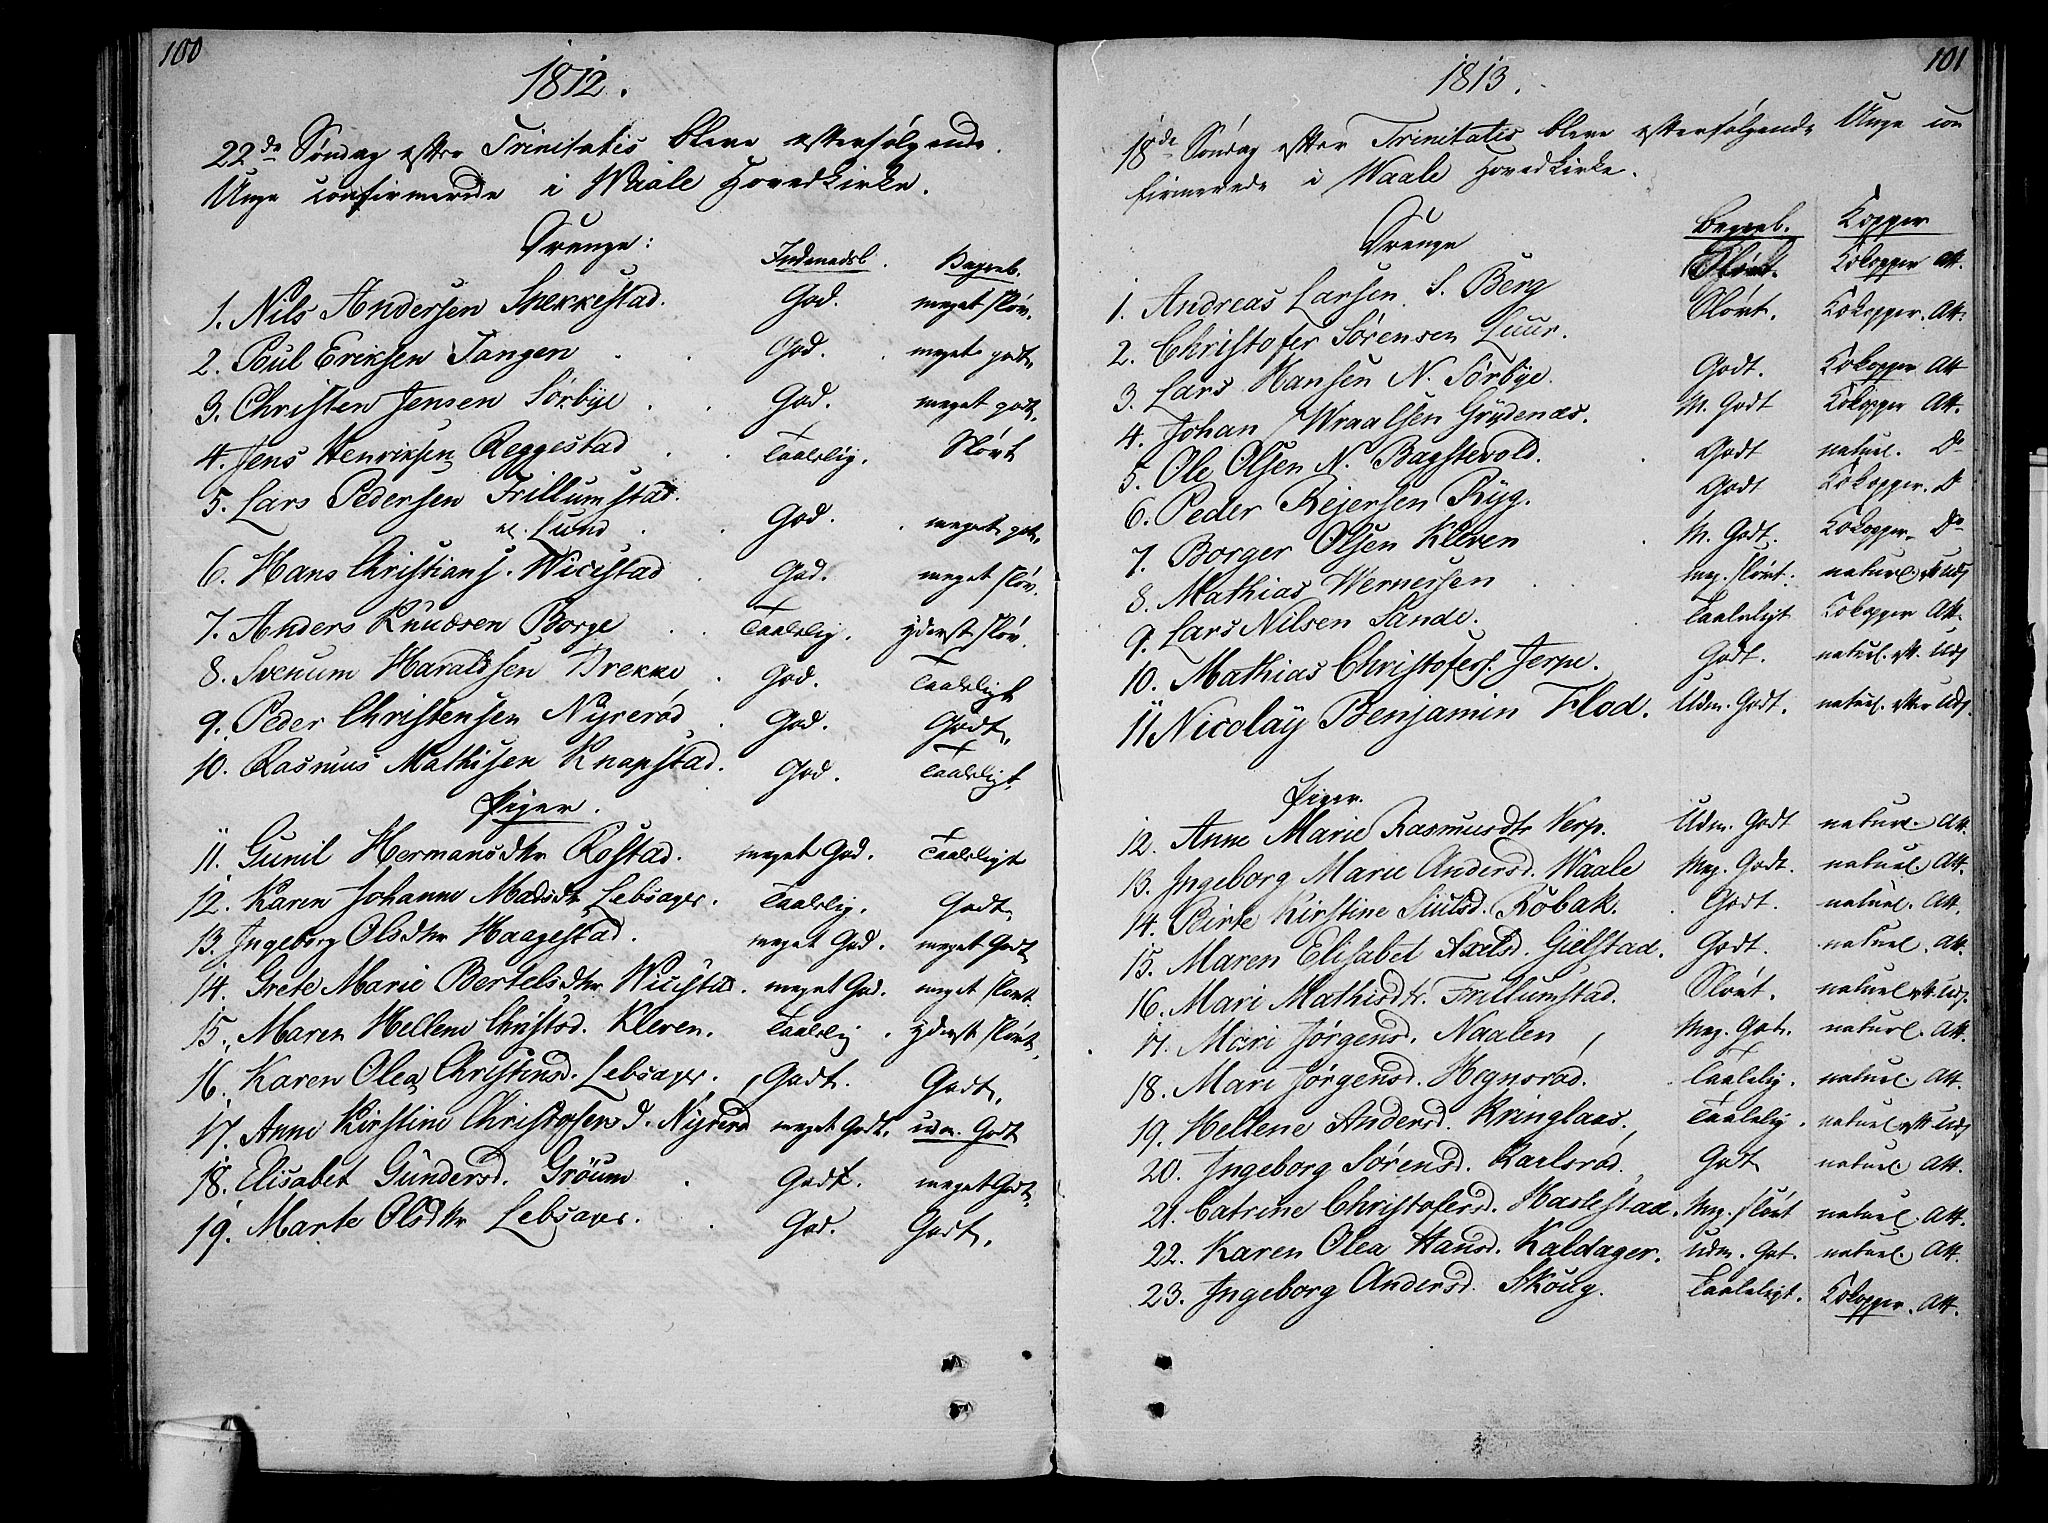 100
1812.
22de Søndag efter Trinitatis bleve efterfølgende
Unge confirmerede i Waale Hovedkirke.
Drenge: Begreb.
1. Nils Andersen Spekkestad. God. meget sløv.
2. Poul Eriksen Tangen God. meget godt.
3. Christen Jensen Sørbye God. meget godt.
4. Jens Henriksen Reggestad Taalelig. Sløvt
5. Lars Pedersen Frillumstad.
Lund God. meget got.
6. Hans Christians. Wicestad God. meget sløv.
7. Anders Knudsen Borge Taalelig. yderst sløv.
8. Svenum Haraldsen Brekke God. Taaleligt
9. Peder Christensen Nyrerød God. Godt.
10. Rasmus Mathisen Knapstad. God. Taaleligt.
Piger.
11. Gunil Hermansdtr Rostad. meget God. Taaleligt
12. Karen Johanne Madsdtr Lebsager. Taalelig. Godt.
13. Ingeborg Olsdtr Haagestad. meget God. meget Godt
14. Grete Marie Bertelsdtr Wicestad. meget God. meget sløvt.
15. Maren Hellene Christsd. Kleven. Taalelig. yderst sløvt.
16. Karen Olea Christinsd. Lebsager. Godt. Godt.
17. Anne Kirstine Christofersd. Nyrerød meget Godt. udm. Godt
18. Elisabet Gundersd. Grøum Godt. meget Godt.
19. Marte Olsdtr Lebsager. God. Godt.
101
1813.
18de Søndag efter Trinitatis bleve efterfølgende Unge con
firmerede i Waale Hovedkirke.
Drenge Begreb. Kopper
1. Andreas Larsen S. Berg Kokopper Att.
2. Christofer Sørensen Luur. Sløvt. Kokopper. Att.
3. Lars Hansen N. Sørbye. Godt. Kokopper Att
4. Johan Wraalsen Grydenæs. M. Godt Kokopper Att.
5. Ole Olsen N. Bagstevold. Godt naturl. Do
6. Peder Rejersen Ryg. Godt Kokopper. Do
7. Borger Olsen Kleven M. Godt. Kokopper. Do
8. Mathias Wernersen Meg. sløvt. naturl. eft. Uds
9. Lars Nilsen Sande. Taaleligt Kokopper Att.
10. Mathias Christofers. Jerpe. Godt. naturl. eft. Uds
11 Nicolay Benjamin Flod. Udm. Godt. naturl. efter Uds.
Piger.
12. Anne Marie Rasmusdtr Nerp. Udm. Godt naturl. Att.
13. Ingeborg Marie Andersd. Waale Meg. Godt. naturl. Att.
14. Birte Kirstine Siulsd. Robak. Godt. naturl. Att.
15. Maren Elisabet Axelsd. Gjelstad. Godt. naturl. Att.
16. Mari Mathisdtr. Frillumstad. Sløvt. naturl eft. Uds.
17. Mari Jørgensd. Naalen Meg. Got. naturl. Att.
18. Mari Jørgensd. Hegnsrød. Taalelig. naturl. Att.
19. Hellene Andersd. Kringlaas. Taalelig. naturl eft. Uds
20. Ingeborg Sørensd. Karlsrød. Got naturl. Att.
21. Catrine Christofersd. Haslestad. Meg. sløvt naturl. Att.
22. Karen Olea Hansd. Kaldager. Udm. Got. naturl. Att.
23. Ingeborg Andersd. Skoug. Taaleligt. Kokopper. Att.